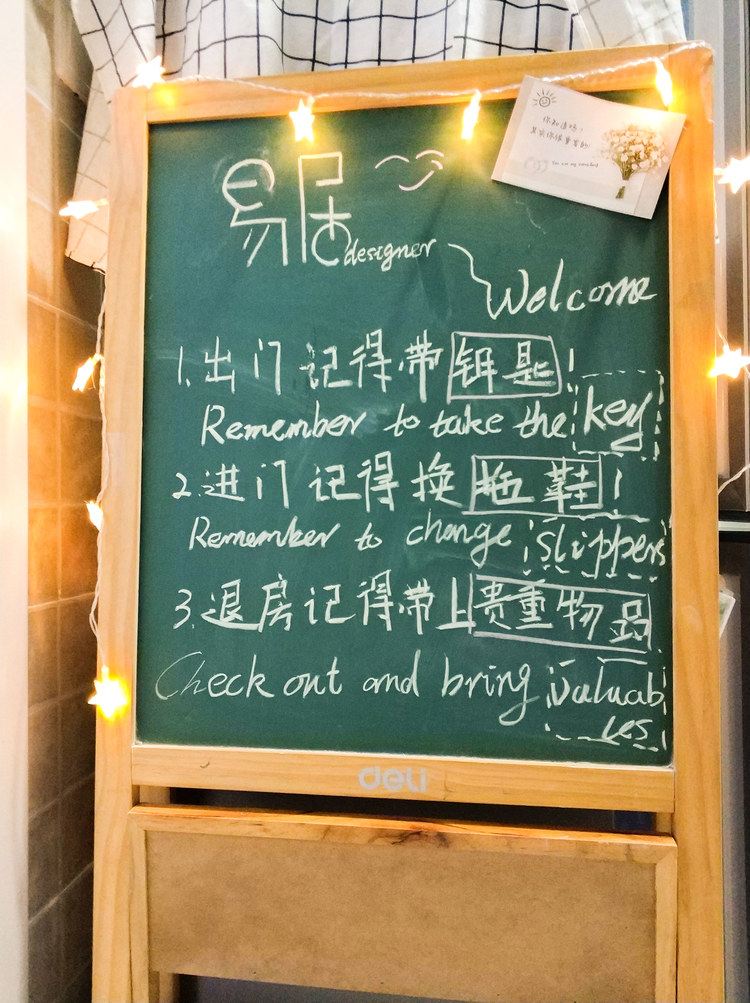 易居
designer
Welcome
1.出门记得带钥匙!
Remember to take the key
2.进门记得换拖鞋!
Remember to change slippers
3.退房记得带上贵重物品
Check out and bring valuab
les
deli
你知道吗,